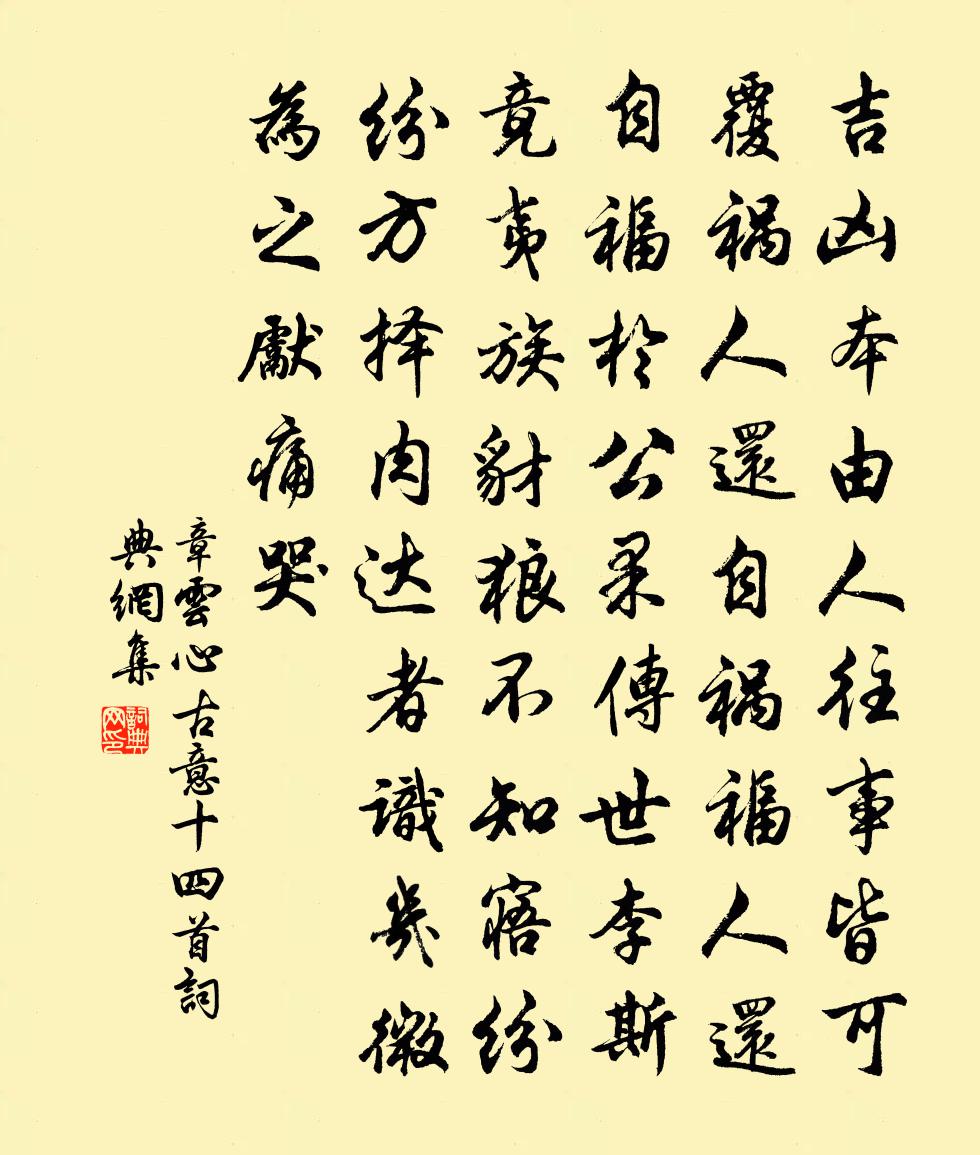 吉凶本由人往事皆可
覆祸人還自祸福人還
自福於公果傳世李斯
竟夷族豺狼不知寤紛
紛方择肉达者識幾微
為之獻痛哭
章雲心古意十四首詞
典網集
詞典网印